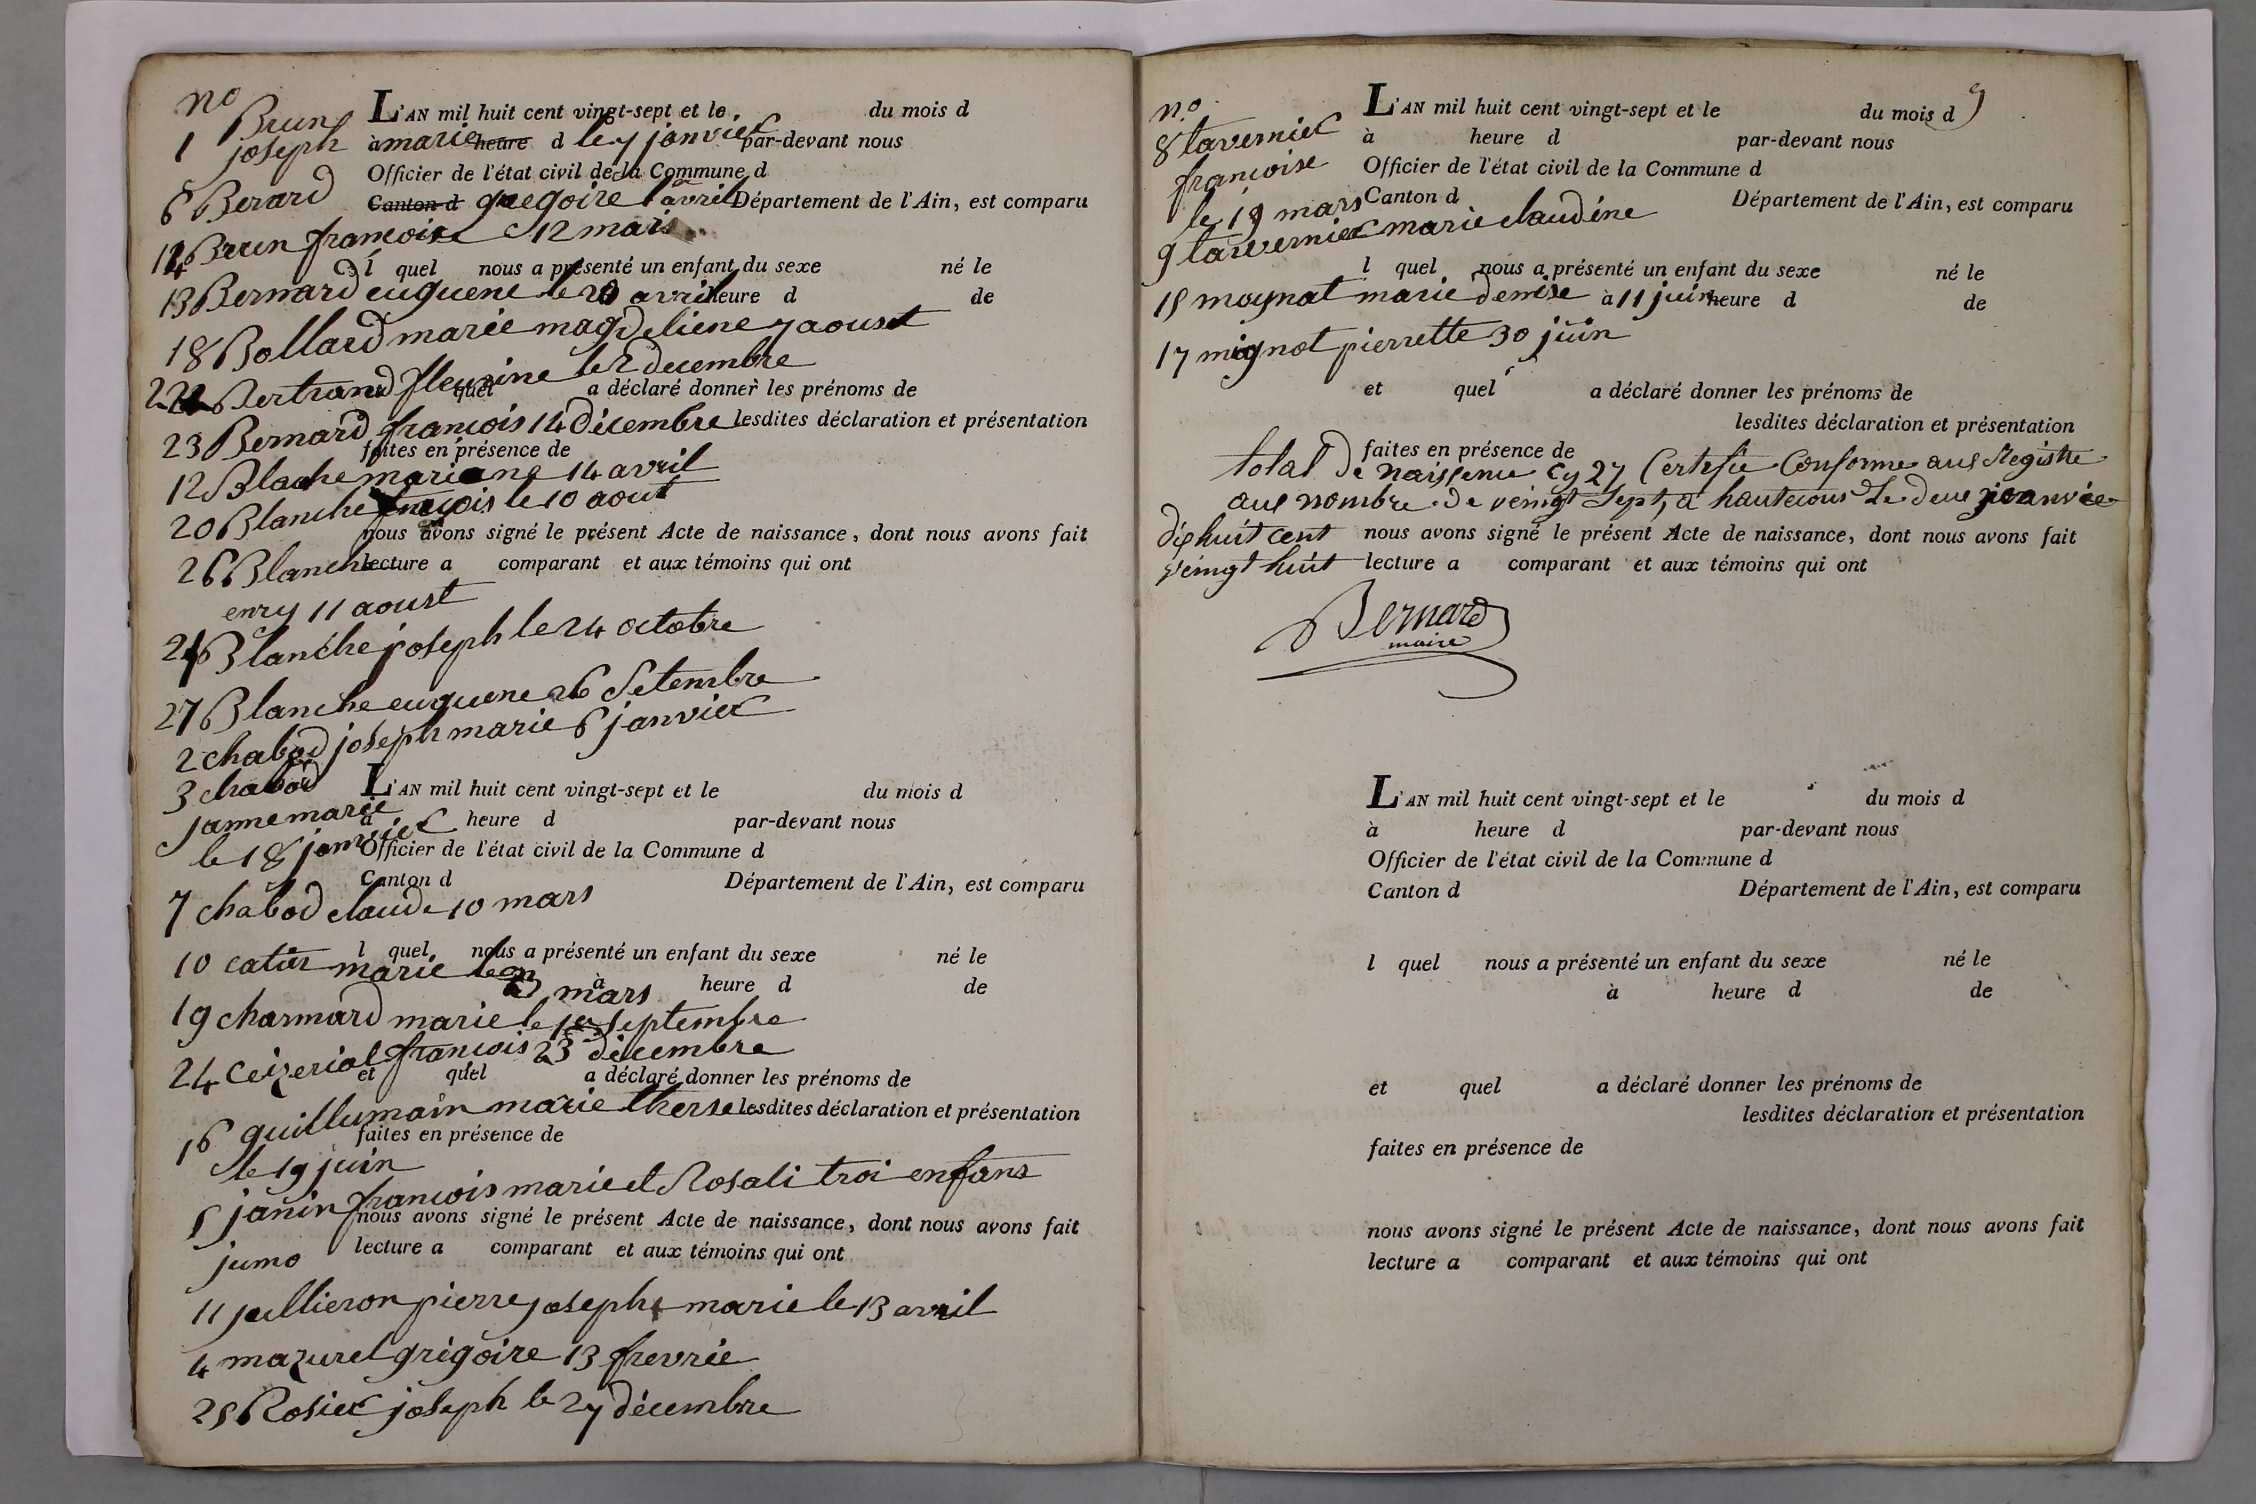 no
Brun L'AN mil huit cent vingt-sept et le du mois d
1 joseph à marie heure d le 7 janvier par-devant nous
Officier de l'état civil de la Commune d
6 Berard Canton d gregoire 1 avril Département de l'Ain, est comparu
14 Brun francoise 12 mais
l quel nous a présenté un enfant du sexe né le
13 Bernard euguene le 20 avril heure d de
18 Bollard marie magdeliene 7 aoust
22 Bertrand fleurine le 2 decembre
quel a déclaré donner les prénoms de
23 Bernard françois 14 décembre lesdites déclaration et présentation
faites en présence de
12 Blache mariane 14 avril
20 Blanche le 10 aout
nous avons signé le présent Acte de naissance, dont nous avons fait
26 Blanche lecture a comparant et aux témoins qui ont
enry 11 aoust
21 Blanche joseph le 24 octobre
27 Blanche euguene 26 Setembre
2 chabod joseph marie 6 janvier
3 chabod L'AN mil huit cent vingt-sept et le du mois d
janne marie à heure d par-devant nous
le 18 janvier Officier de l'état civil de la Commune d
Canton d Département de l'Ain, est comparu
7 chabod claude 10 mars
l quel nous a présenté un enfant du sexe né le
10 catin marie le 23 mars à heure d de
19 charmard marie le 1er septembre
24 Ceizeriat francois 23 décembre
et quel a déclaré donner les prénoms de
16 guillumain marie therse lesdites déclaration et présentation
faites en présence de
le 19 juin
5 janin francois marie et Rosali troi enfans
nous avons signé le présent Acte de naissance, dont nous avons fait
jumo lecture a comparant et aux témoins qui ont
11 jullieron pierre joseph marie le 13 avril
4 mazurel grégoire 13 frevrie
25 Rosier joseph le 27 décembre
no 9
L'AN mil huit cent vingt-sept et le du mois d
8 tavernier à heure d par-devant nous
francoise Officier de l'état civil de la Commune d
le 19 mars Canton d Département de l'Ain, est comparu
9 tavernier marie claudine
l quel nous a présenté un enfant du sexe né le
15 moynat marie denise à 11 juin heure d de
17 mignot pierrette 30 juin
et quel a déclaré donner les prénoms de
lesdites déclaration et présentation
faites en présence de
total de naissence cy 27 Certifie Conforme aus Registre
aus nombre de veingt Sept, a hautecous Le deus joanvie
dix huit cent nous avons signé le présent Acte de naissance, dont nous avons fait
veingt huit lecture a comparant et aux témoins qui ont
Bernard
maire
L'AN mil huit cent vingt-sept et le du mois d
à heure d par-devant nous
Officier de l'état civil de la Commune d
Canton d Département de l'Ain, est comparu
l quel nous a présenté un enfant du sexe né le
à heure d de
et quel a déclaré donner les prénoms de
lesdites déclaration et présentation
faites en présence de
nous avons signé le présent Acte de naissance, dont nous avons fait
lecture a comparant et aux témoins qui ont